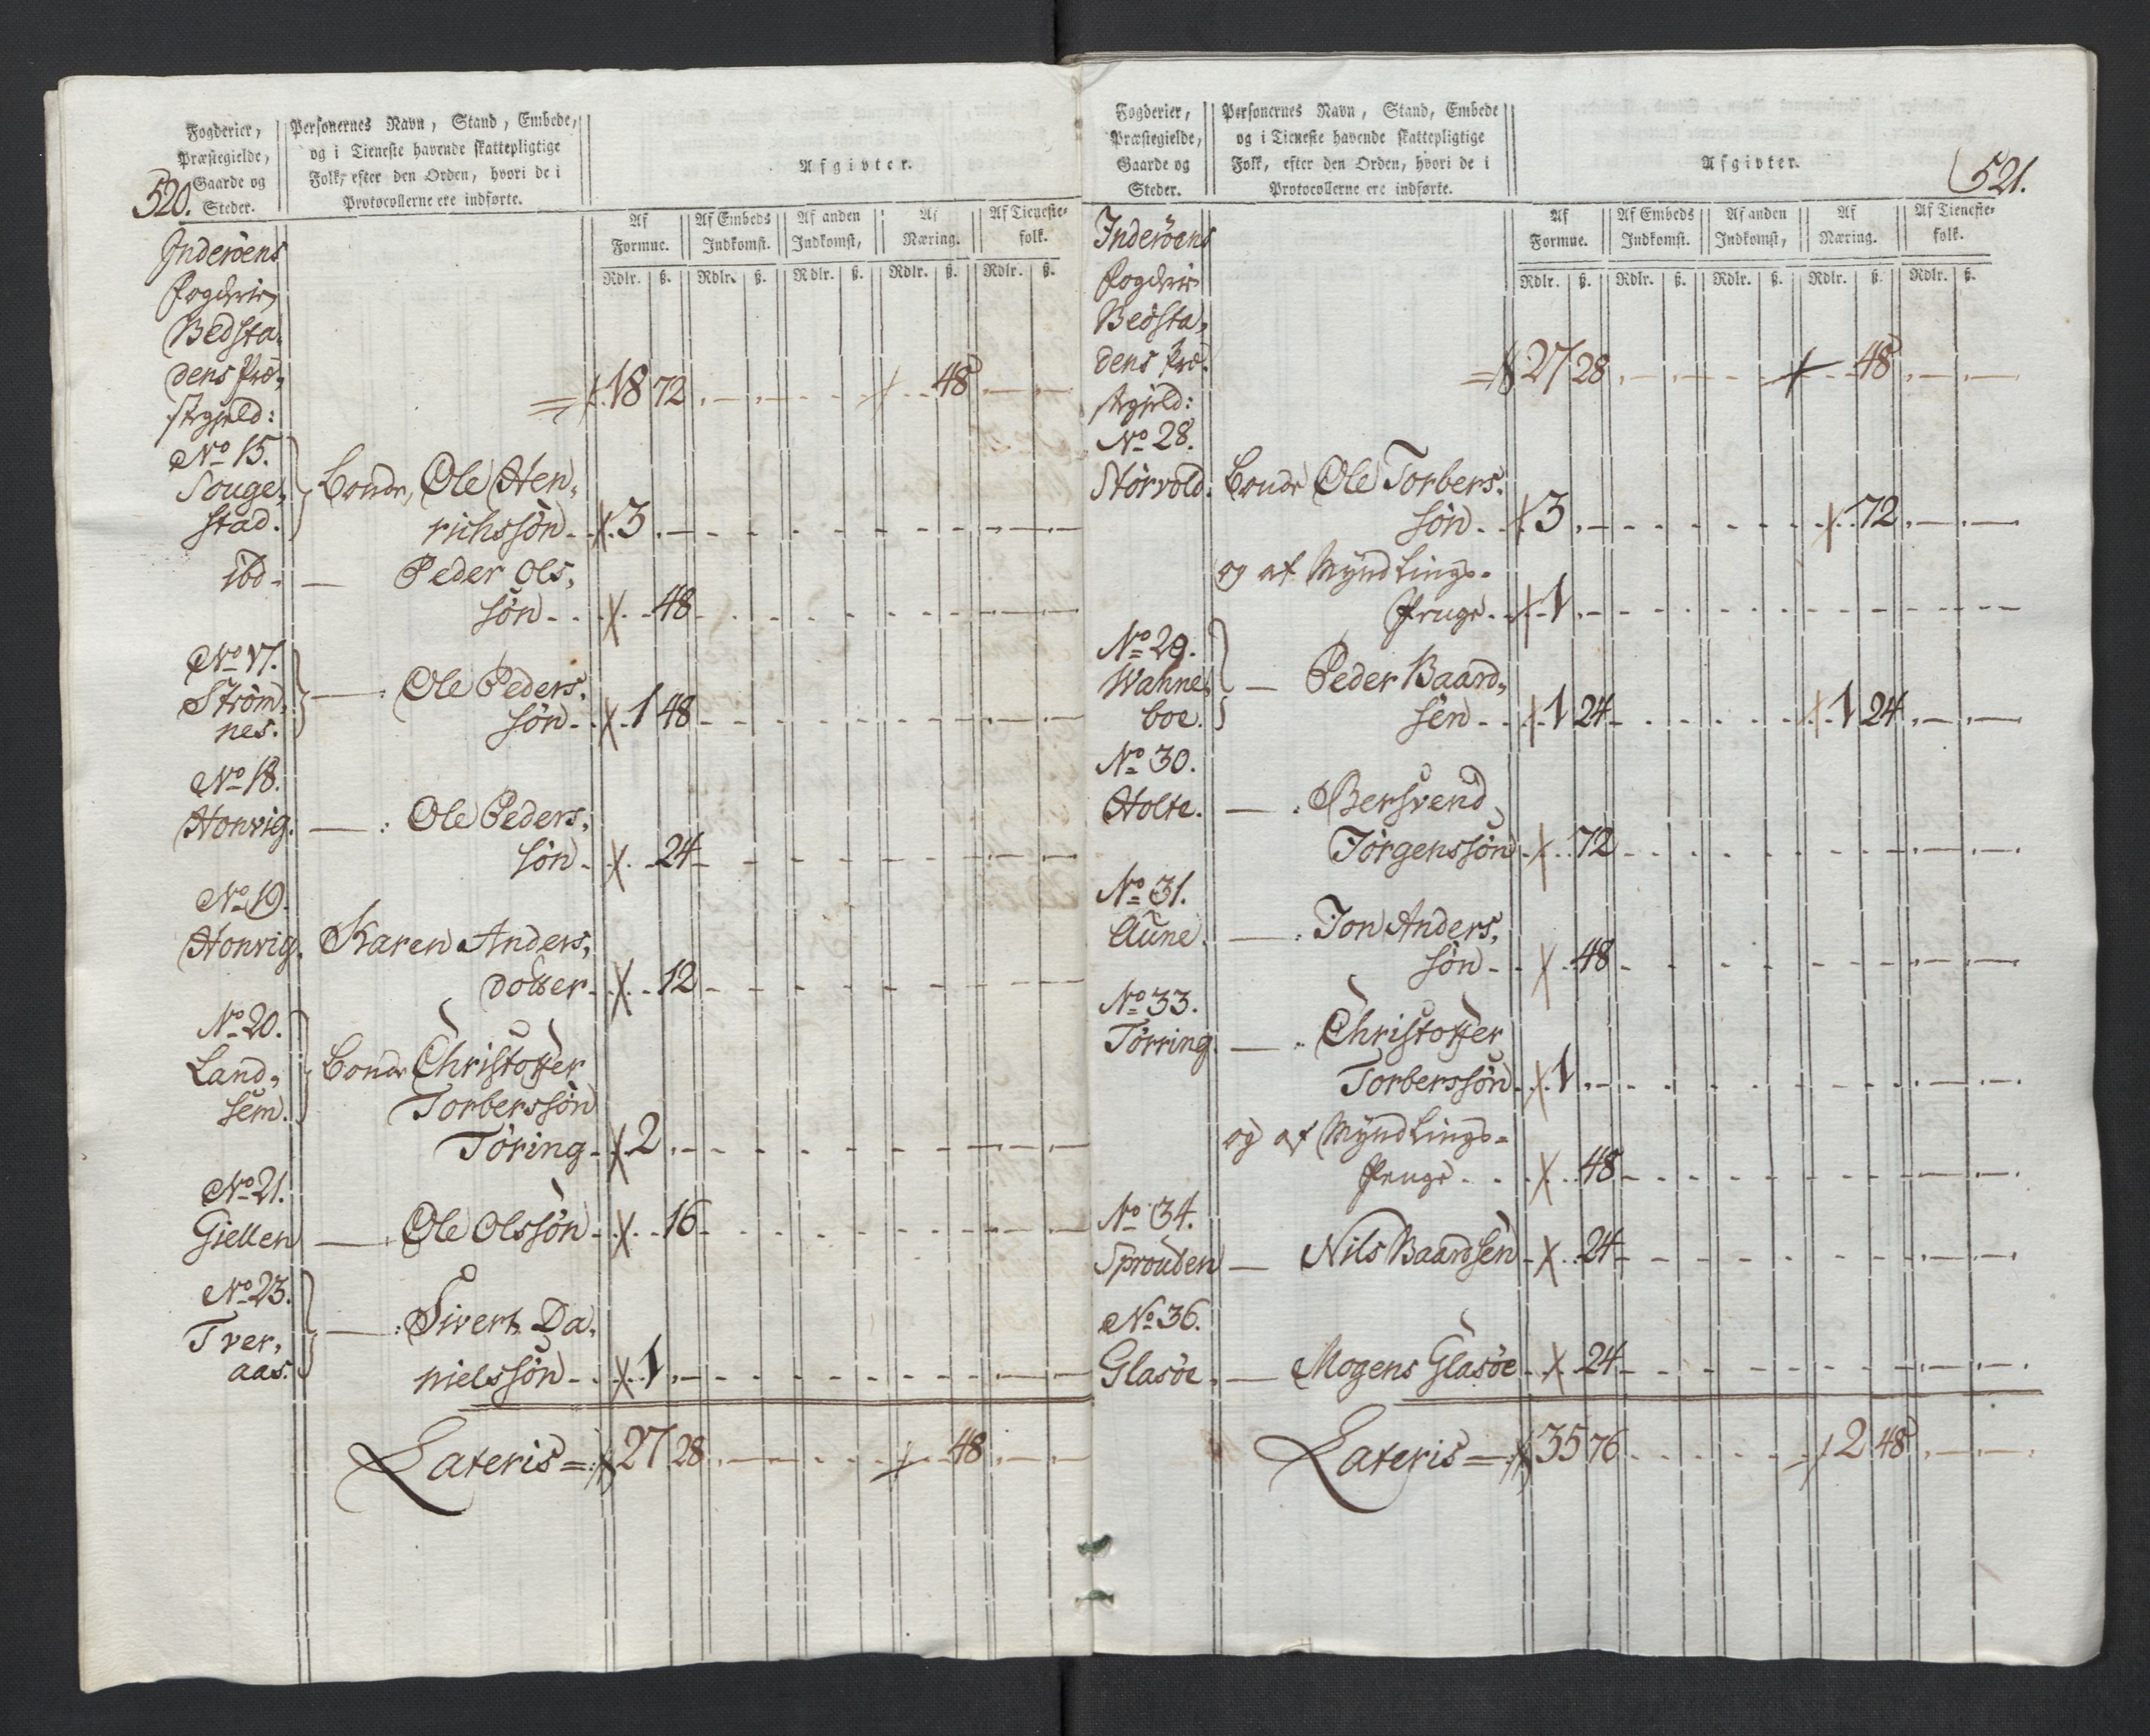 520.
Fogderier,
Præstegielde,
Gaarde og
Steder.
Personernes Navn, Stand, Embede,
og i Tieneste havende skattepligtige
Folk, efter den Orden, hvori de i
Protocollerne ere indførte.
Afgivter.
Af Formue.
Af Embeds Indkomst.
Af anden Indkomst,
Af Næring.
Af Tieneste-folk.
Rdlr. ß. Rdlr. ß. Rdlr. ß. Rdlr. ß. Rdlr. ß.
Inderöens
Fogderie,
Bedsta,
dens Præ,
stegjeld:
18 72 48
No 15.
Souge,
stad.
Bonde, Ole Hen,
richssön 3
ibd. — Peder Ols,
sön 48
No 17.
Ström,
nes.
— : Ole Peders,
sön 1 48
No 18.
Honvig. — : Ole Peders,
sön 24
No 19.
Honvig. Karen Anders,
dotter 12
No 20.
Land,
sem.
Bonde Christoffer
Torberssön
Töring 2
No 21.
Giellen — : Ole Olssön 16
No 23.
Tver,
aas.
— : Sivert Da,
nielssön 1
Lateris = 27 28 48
521.
Fogderier,
Præstegielde,
Gaarde og
Steder.
Personernes Navn, Stand, Embede
og i Tieneste havende skattepligtige
Folk, efter den Orden, hvori de i
Protocollerne ere indførte.
Afgivter.
Af Formue.
Af Embeds Indkomst.
Af anden Indkomst,
Af Næring.
Af Tieneste-folk.
Rdlr. ß. Rdlr. ß. Rdlr. ß. Rdlr. ß. Rdlr. ß.
Inderöens
Fogderie
Bedsta,
dens Præ,
stegjeld:
27 28 48
No 28.
Störvold. Bonde Ole Torbers,
sön 3 72
og af Myndlings-
Penge 1
No 29.
Wanne,
boe.
— Peder Baard,
sen 1 24 1 24
No 30.
Holte. — : Bersvend
Jörgenssön 72
No 31.
Aune. — : Jon Anders,
sön 48
No 33.
Törring. — : Christoffer
Torberssön 1
og af Myndlings-
Penge 48
No 34.
Sprouten — Nils Baardsen 24
No 36.
Glasöe. — Mogens Glasöe 24
Lateris = 35 76 2 48